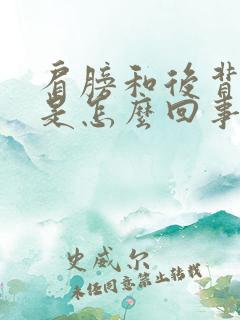 肩膀和後背
是怎麼回事
史威尔
未经同意禁止转载